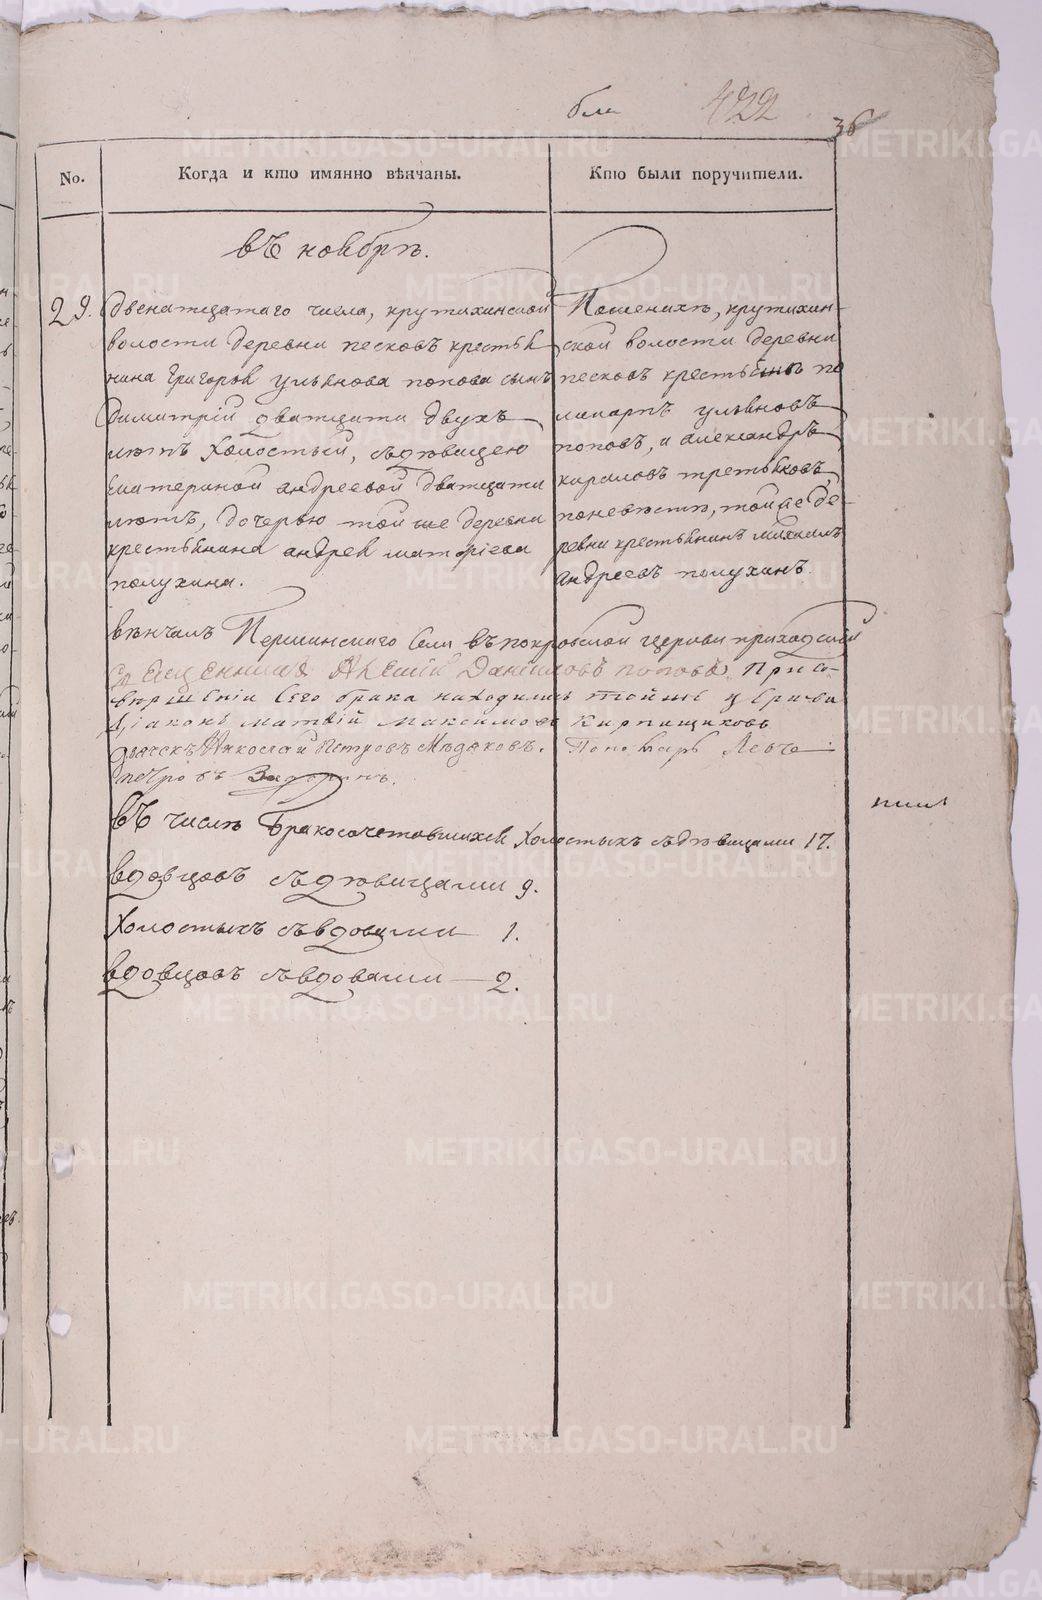 422
36
No.
Когда и кто имянно вѣнчаны.
Кто были поручители.
въ ноябрѣ.
29.
двенатцатаго числа, крутихинской
волости деревни песковъ крестья
нина григорья ульянова попова сынъ
Димитрій дватцати двухъ
лѣтъ холостый, съдѣвицею
Екатериной андреевой дватцати
лѣтъ, дочерью той же деревни
крестьянина андрея матфіева
полухина.
Поженихѣ, крутихин-
ской волости деревни
песковъ крестьяны по
ликарпъ ульяновъ
поповъ, и александръ
кириловъ третьяковъ,
поневѣстѣ, той же де-
ревни крестьянинъ михаилъ
андреевъ полухинъ.
вѣнчалъ Першинскаго села въ покровской церкви приходской
Священникъ Алексій Даниловъ поповъ. При со-
вѣршеніи Сего брака находились тойже церкви
Діаконъ Матвій Максимовъ Кирпищиковъ
дьячекъ Николай Петровъ Медяковъ. Пономарь
петровъ
въ числѣ бракосочетавшихся холостыхъ съдѣвицами 17.
вдовцовъ съдѣвицами 9.
Холостыхъ съвдовами 1.
вдовцовъ съвдовами — 2.
METRIKI.GASO-URAL.RU